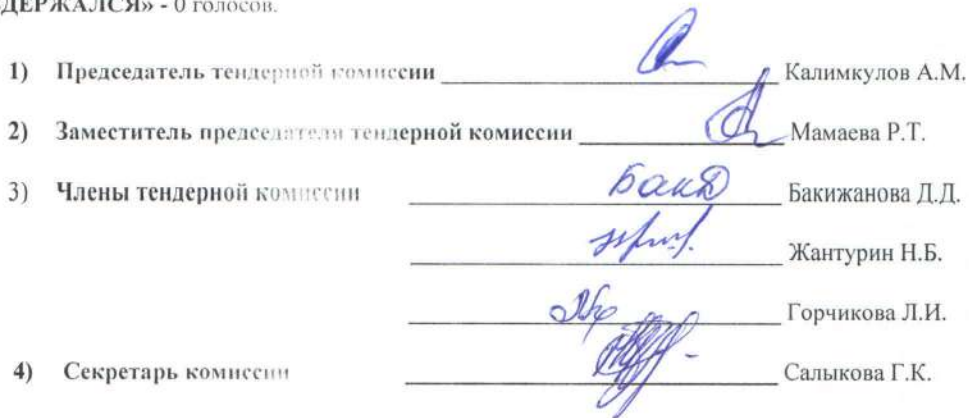 ДЕРЖАЛСЯ» - 0 голосов.
1) Председатель тендерной комиссии Калимкулов А.М.
2) Заместитель председателя тендерной комиссии Мамаева Р.Т.
3) Члены тендерной комиссии БакД Бакижанова Д.Д.
Жантурин Н.Б.
Горчикова Л.И.
4) Секретарь комиссии Салыкова Г.К.